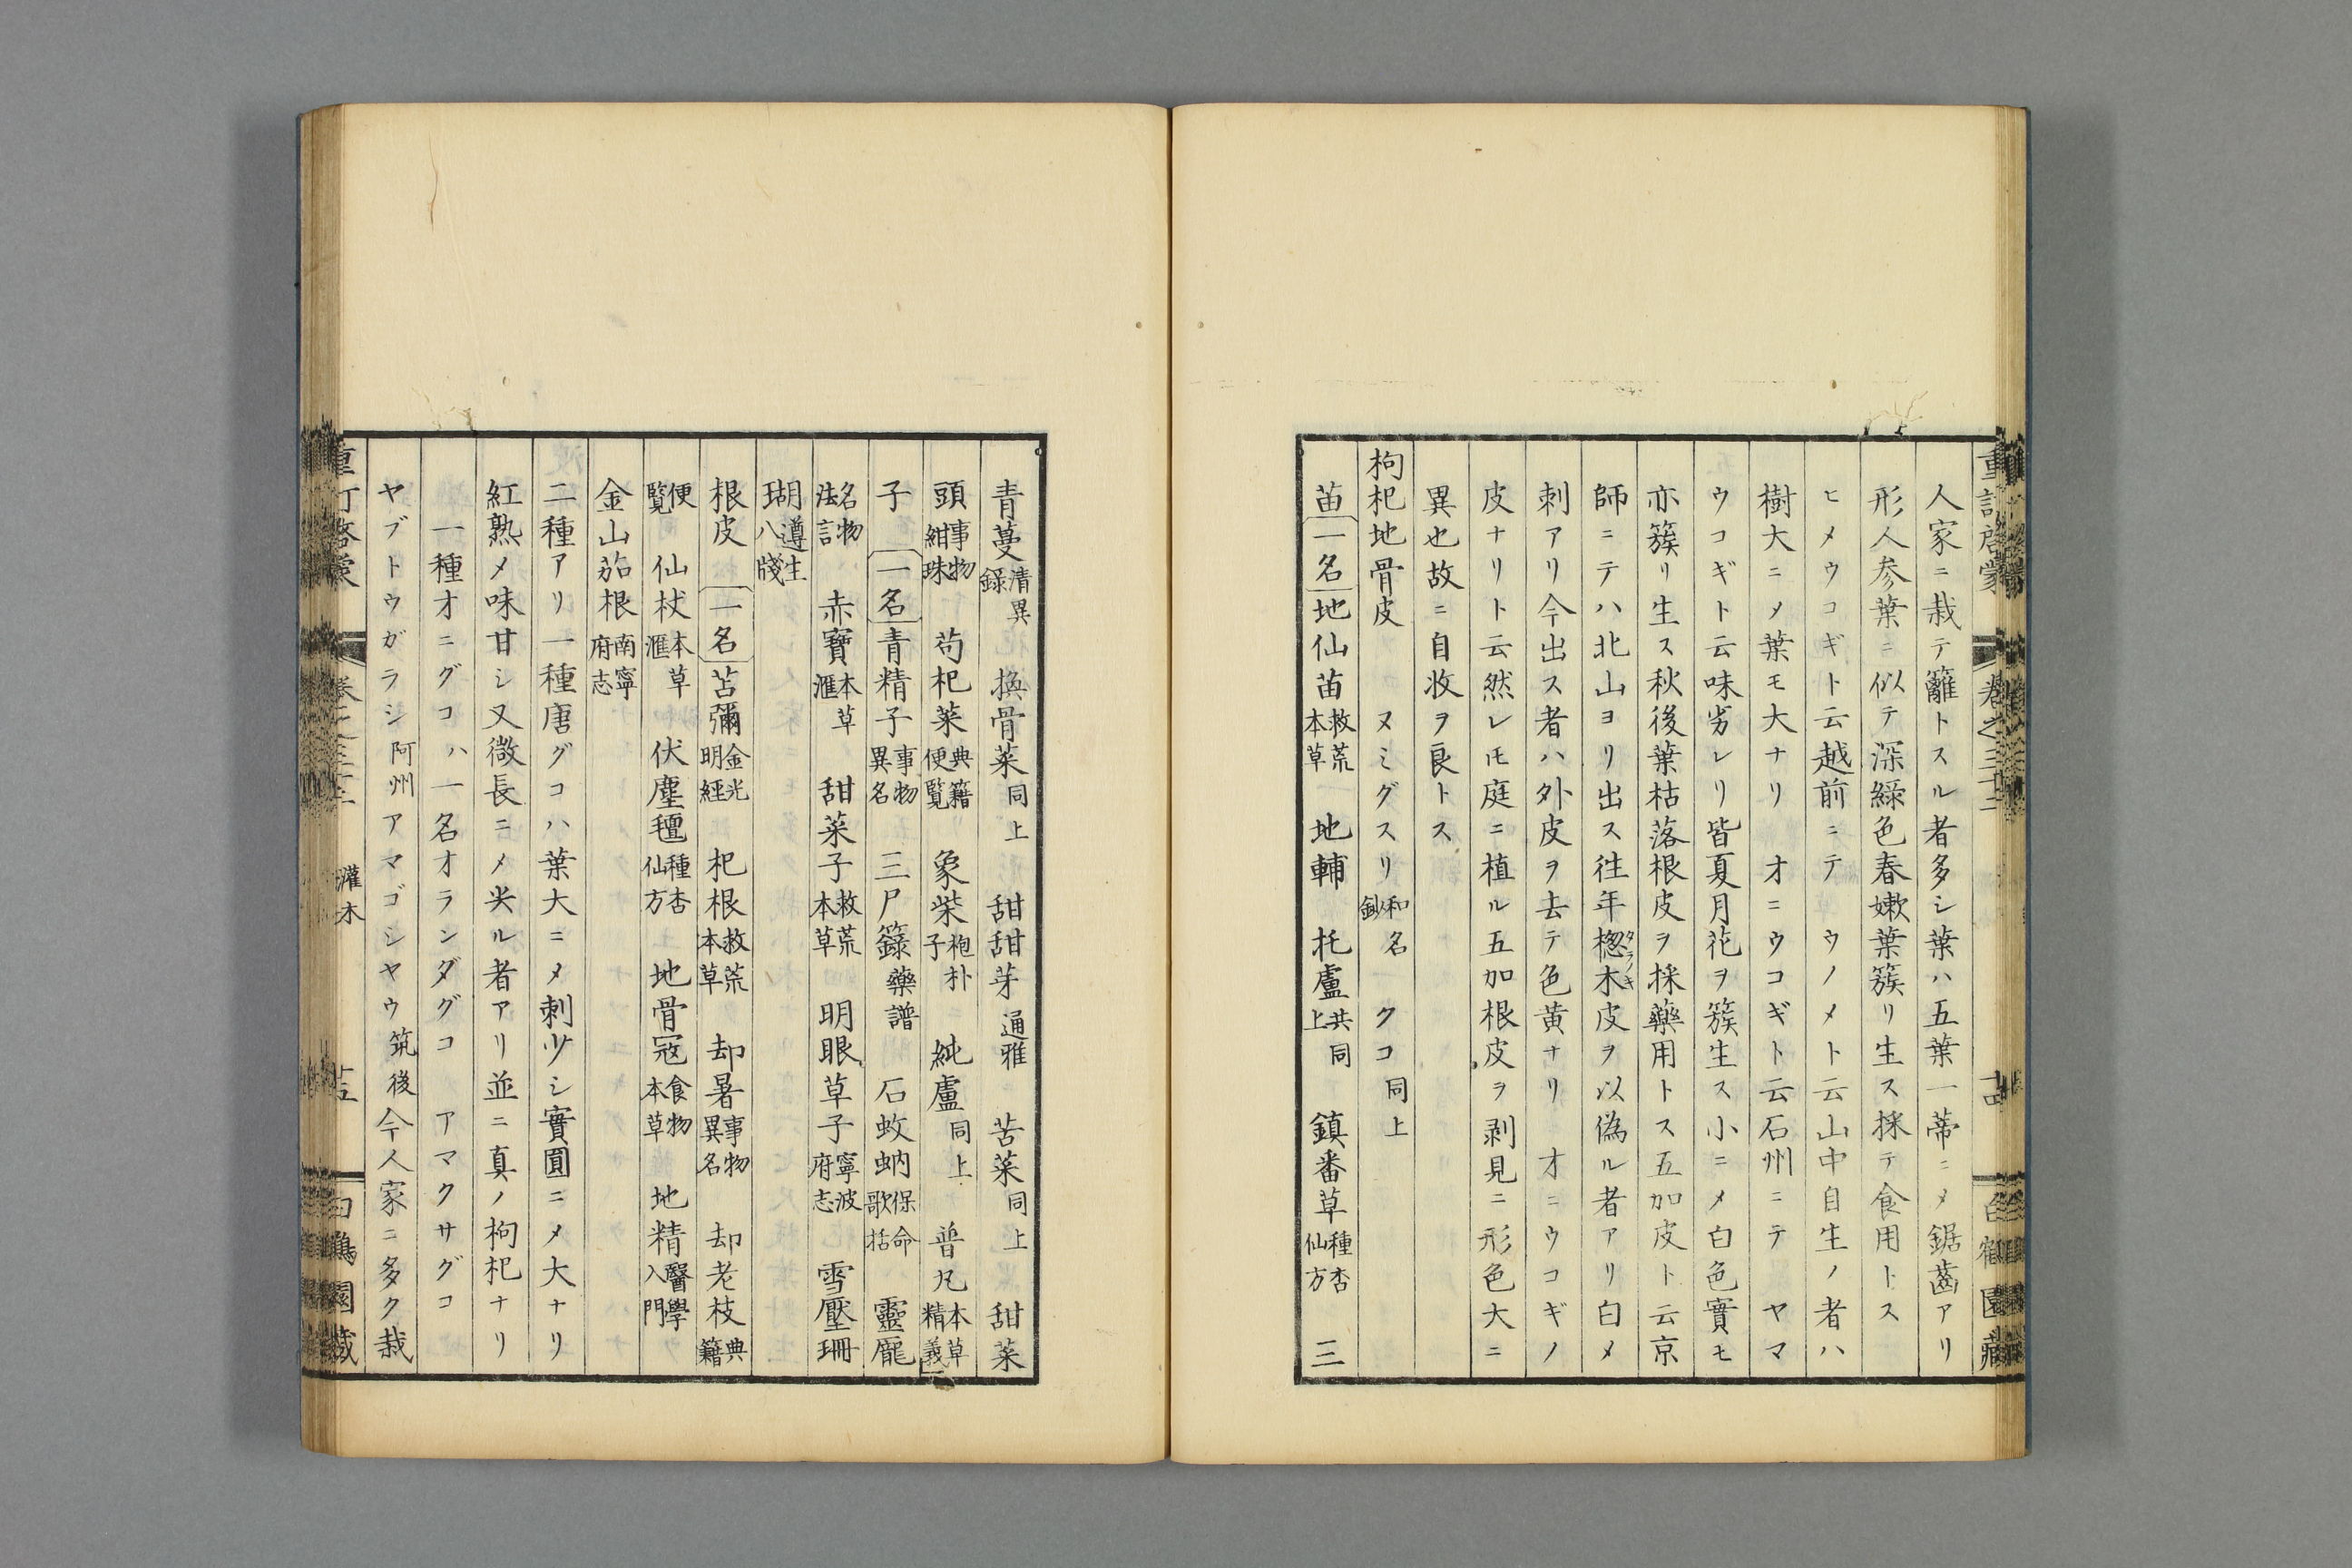 人家ニ栽テ籬トスル者多シ葉ハ五葉一蒂ニメ鋸齒アリ
形人参葉ニ似テ深緑色春嫩葉簇リ生ス採テ食用トス
ヒメウコギト云越前ニテ ウノメト云山中自生ノ者ハ
樹大ニメ葉モ大ナリ オニウコギト云石州ニテ ヤマ
ウコギト云味劣レリ皆夏月花ヲ簇生ス小ニメ白色實モ
亦簇リ生ス秋後葉枯落根皮ヲ採藥用トス五加皮ト云京
師ニテハ北山ヨリ出ス徃年楤木皮ヲ以偽ル者アリ白メ
タラノキ
刺アリ今出ス者ハ外皮ヲ去テ色黄ナリ オニウコギノ
皮ナリト云然レ𪜈庭ニ植ル五加根皮ヲ剥見ニ形色大ニ
異也故ニ自收ヲ良トス
枸杞地骨皮 ヌミグスリ和名鈔 クコ同上
苗一名地仙苗救荒本草 地輔 托盧共同上 鎮番草種杏仙方 三
重訂啓蒙 卷之三十二
青蔓清異錄 換骨菜同上 甜甜芽通雅 苦菜同上 甜菜
頭事物紺珠 苟杞菜典籍便覽 象柴枹朴子 純盧同上 普凡本草精義
子一名青精子事物異名 三尸籙藥譜 石蚊蚋保命歌括 靈龐
名物法言 赤寶本草滙 甜菜子救荒本草 明眼草子寧波府志 雪壓珊
瑚遵生八牋
根皮 一名苫彌金光明經 杞根救荒本草 却暑事物異名 却老枝典籍
便覽 仙杖本草滙 伏塵氊種杏仙方 地骨冦食物本草 地精醫學入門
金山茄根南寧府志
二種アリ一種唐グコハ葉大ニメ刺少シ實圓ニメ大ナリ
紅熟メ味甘シ又微長ニメ尖ル者アリ並ニ真ノ枸杞ナリ
一種オニグコハ一名オランダグコ アマクサグコ
ヤブトウガラシ阿州アマゴシヤウ筑後今人家ニ多ク栽
灌木